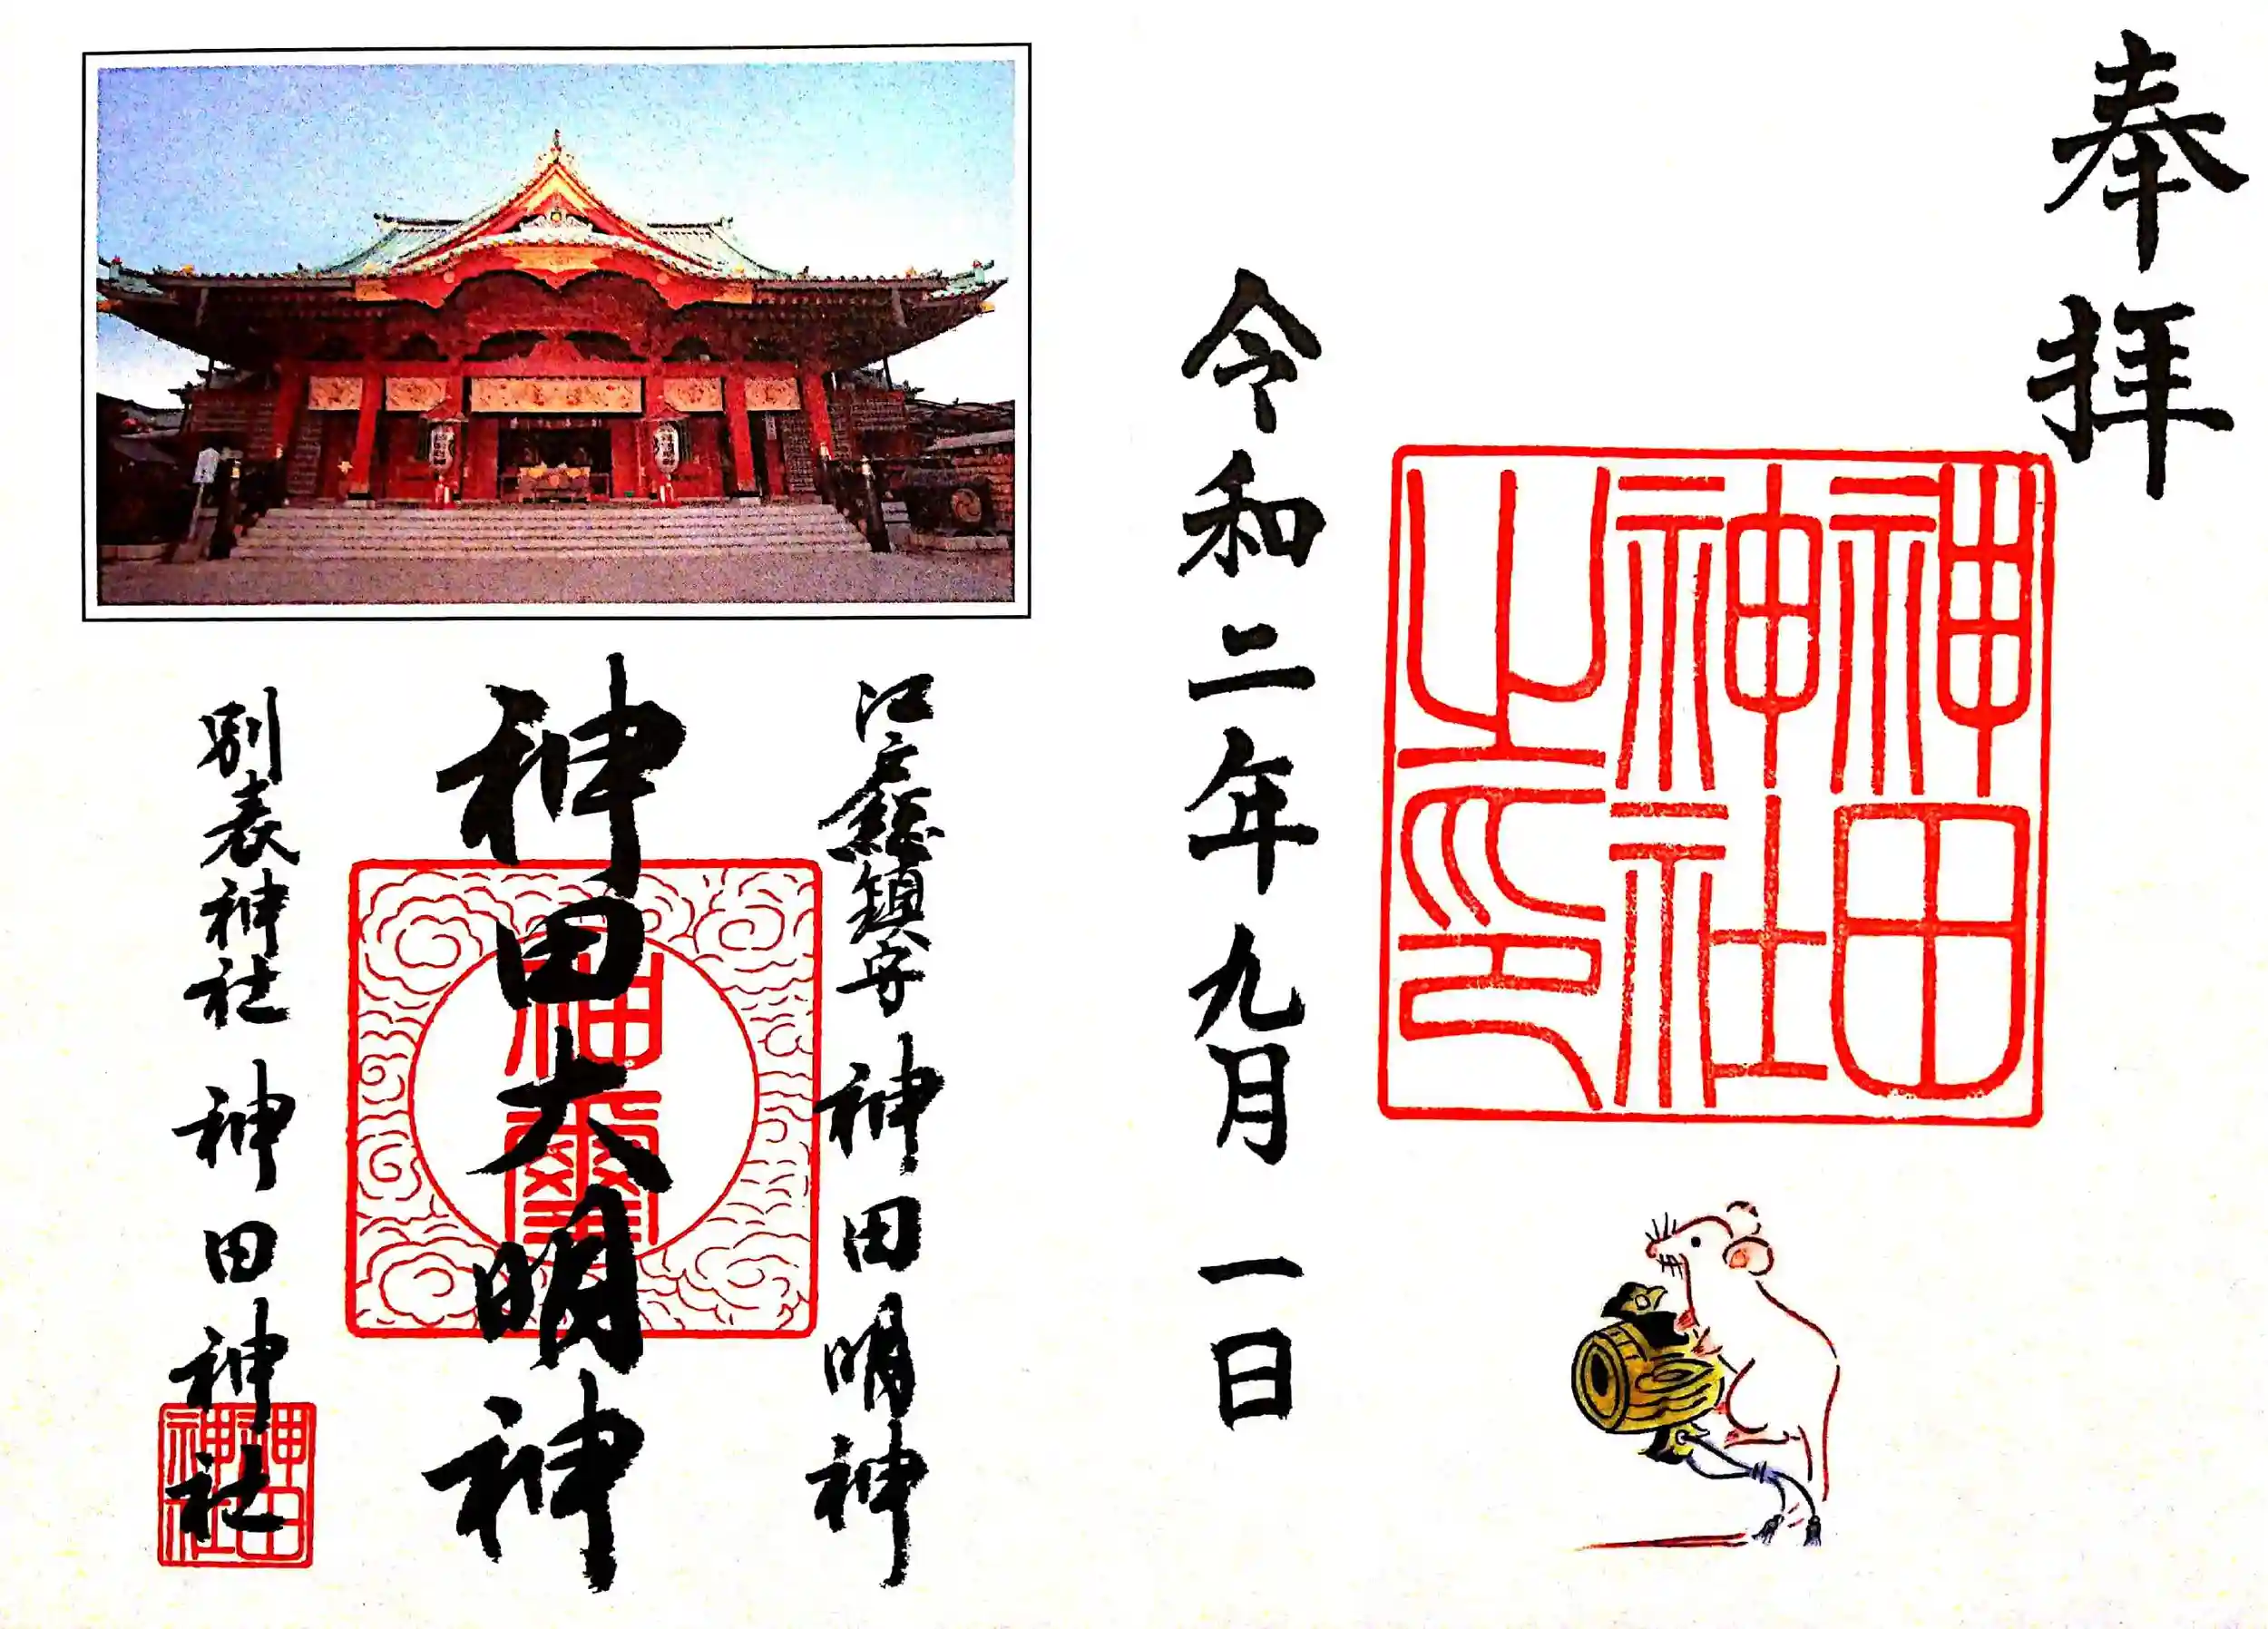 奉拝
神田神社之印
令和二年九月一日
江戸総鎮守 神田明神
神田大明神
神璽
別表神社 神田神社
神田神社